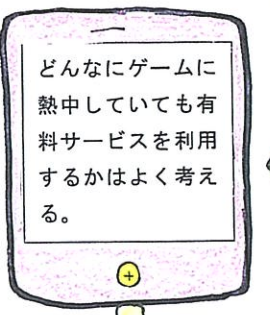 どんなにゲームに
熱中していても有
料サービスを利用
するかはよく考え
る。